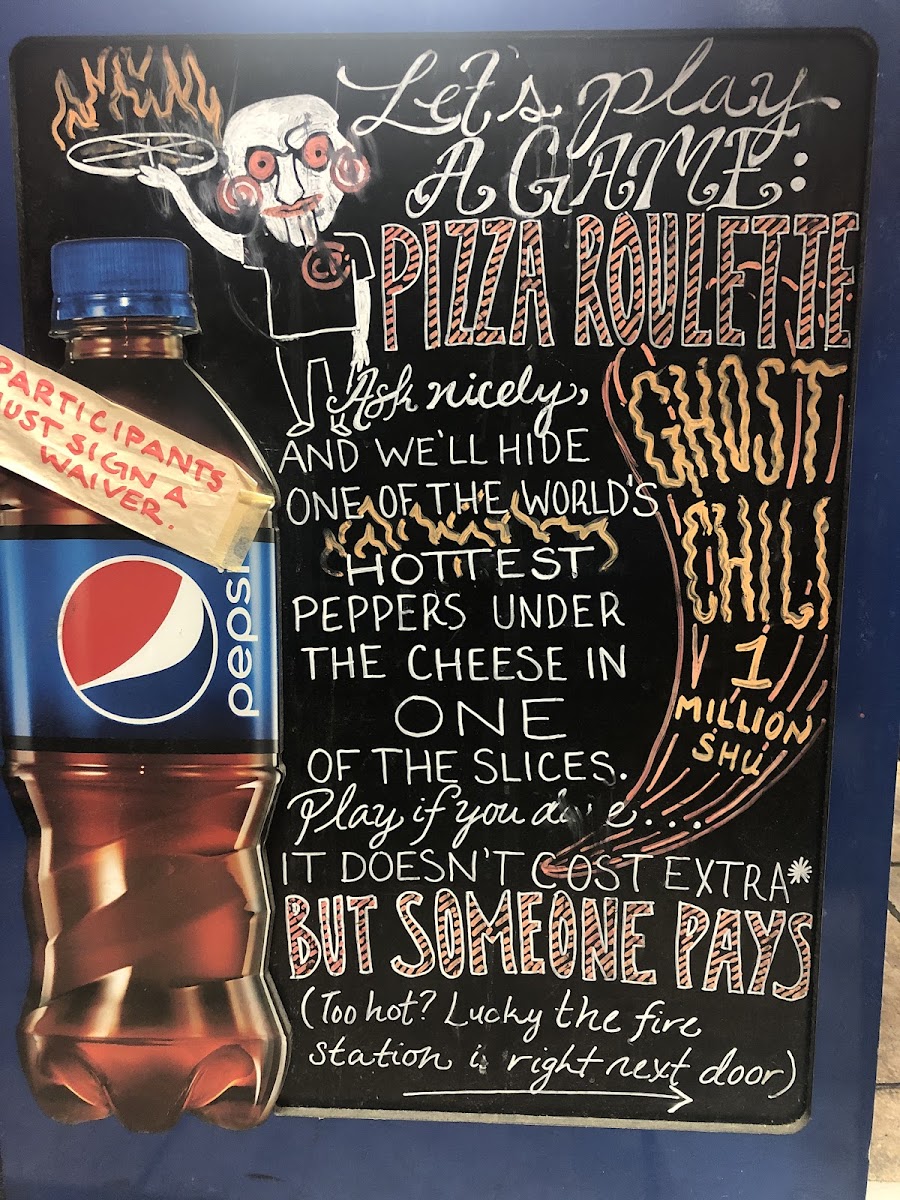 Let's play
A GAME:
PIZZA ROULETTE
Ask nicely,
AND WE'LL HIDE
ONE OF THE WORLD'S
HOTTEST
PEPPERS UNDER
THE CHEESE IN
ONE
OF THE SLICES.
Play if you dare...
IT DOESN'T COST EXTRA*
BUT SOMEONE PAYS
(Too hot? Lucky the fire
station is right next door)
GHOST
CHILI
1
MILLION
SHU
PARTICIPANTS
MUST SIGN A
WAIVER.
pepsi